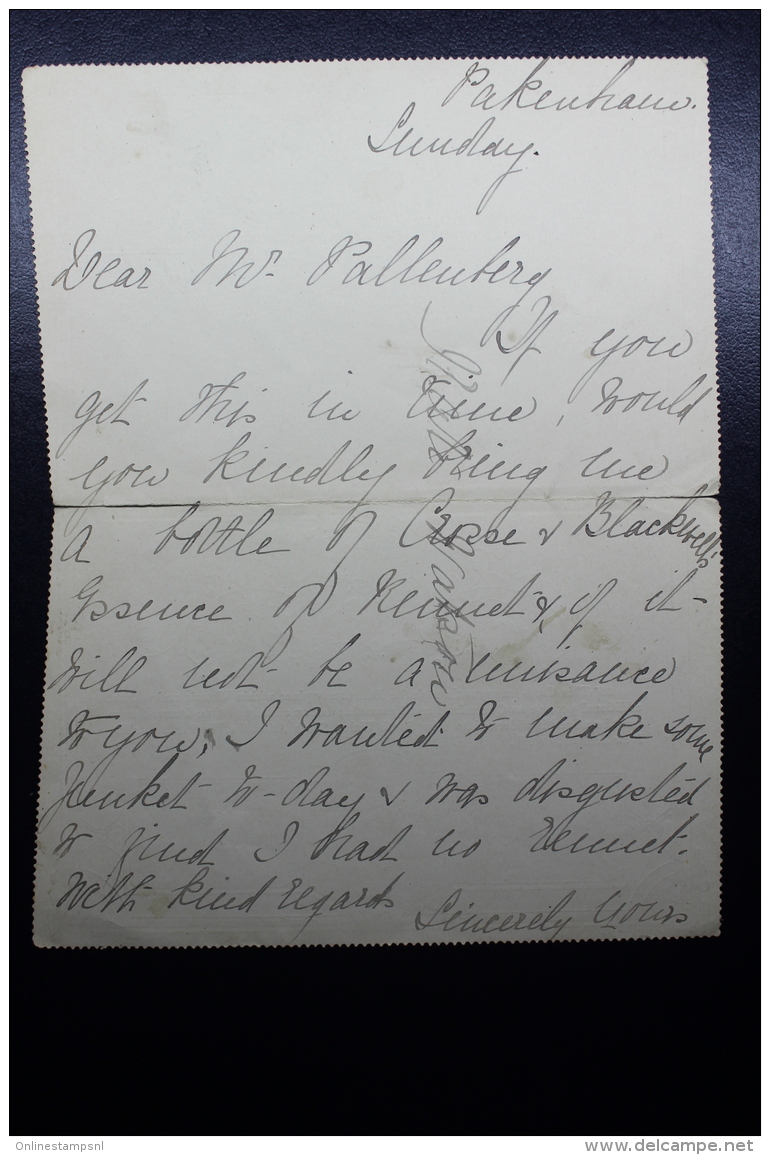 Pakenham.
Sunday.
Dear Mr. Pallenberg
If you
get this in time, would
you kindly bring me
a bottle of Crosse & Blackwell's
Essence of Rennet &, if it
will not be a nuisance
to you, I wanted to make some
junket to-day & was disgusted
to find I had no Rennet.
With kind regards
Sincerely Yours
Watson
Onlinestampsnl
www.delcampe.net